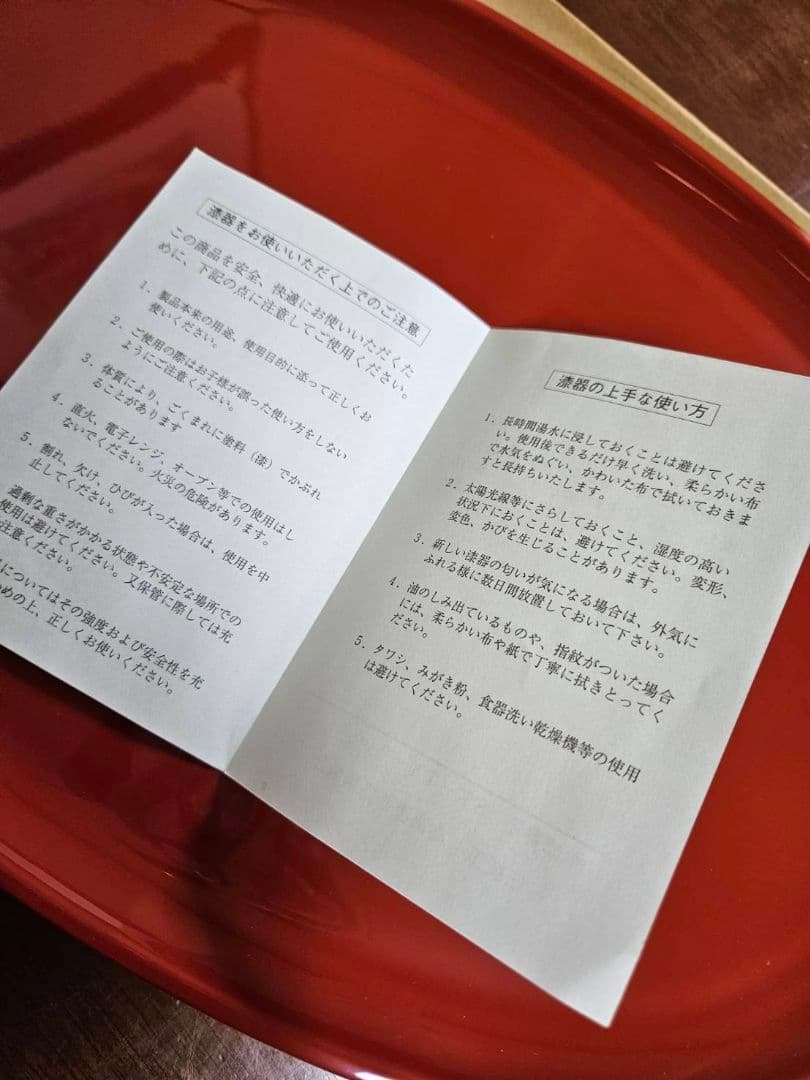 漆器をお使いいただく上でのご注意
この商品を安全、快適にお使いいただくた
めに、下記の点に注意してご使用ください。
1. 製品本来の用途、使用目的に添って正しくお
使いください。
2. ご使用の際はお子様が誤った使い方をしない
ようにご注意ください。
3. 体質により、ごくまれに塗料（漆）でかぶれ
ることがあります
4. 直火、電子レンジ、オーブン等での使用はし
ないでください。火災の危険があります。
5. 割れ、欠け、ひびが入った場合は、使用を中
止してください。
過剰な重さがかかる状態や不安定な場所での
使用は避けてください。又保管に際しては充
注意ください。
についてはその強度および安全性を充
めの上、正しくお使いください。
漆器の上手な使い方
1. 長時間湯水に浸しておくことは避けてくださ
い。使用後できるだけ早く洗い、柔らかい布
で水気をぬぐい、かわいた布で拭いておきま
すと長持ちいたします。
2. 太陽光線等にさらしておくこと、湿度の高い
状況下におくことは、避けてください。変形、
変色、かびを生じることがあります。
3. 新しい漆器の匂いが気になる場合は、外気に
ふれる様に数日間放置しておいて下さい。
4. 油のしみ出ているものや、指紋がついた場合
には、柔らかい布や紙で丁寧に拭きとってく
ださい。
5. タワシ、みがき粉、食器洗い乾燥機等の使用
は避けてください。